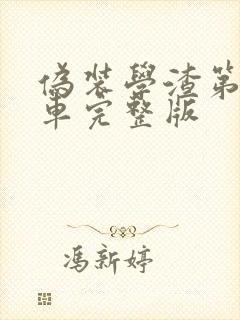 偽裝學渣第
車完整版
馮新婷